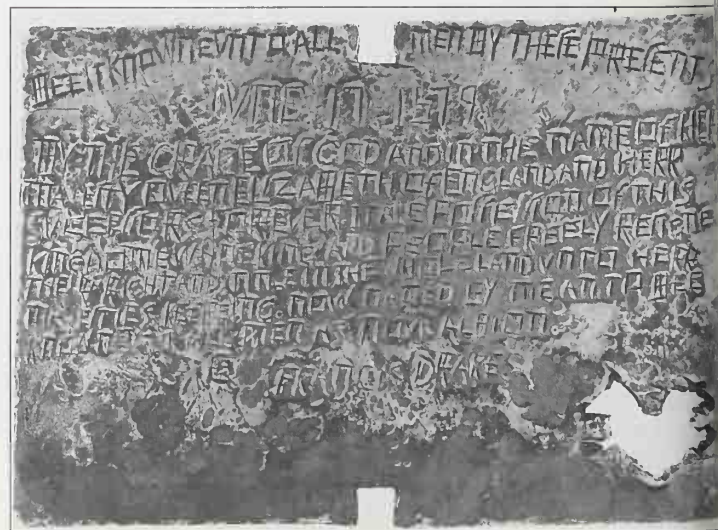 BEE IT KNOWNE VNTO ALL MEN BY THESE PRESENTS
IVNE 17 1579
BY THE GRACE OF GOD AND IN THE NAME OF HERR
MAIESTY QVEEN ELIZABETH OF ENGLAND AND HERR
SVCCESSORS FOREVER I TAKE POSSESSION OF THIS
KINGDOME WHOSE KING AND PEOPLE FREELY RESIGNE
THEIR RIGHT AND TITLE IN THE WHOLE LAND VNTO HERR
MAIESTIES KEEPEING NOW NAMED BY ME AN TO BEE
MEN AS NOVA ALBION
FRANCIS DRAKE